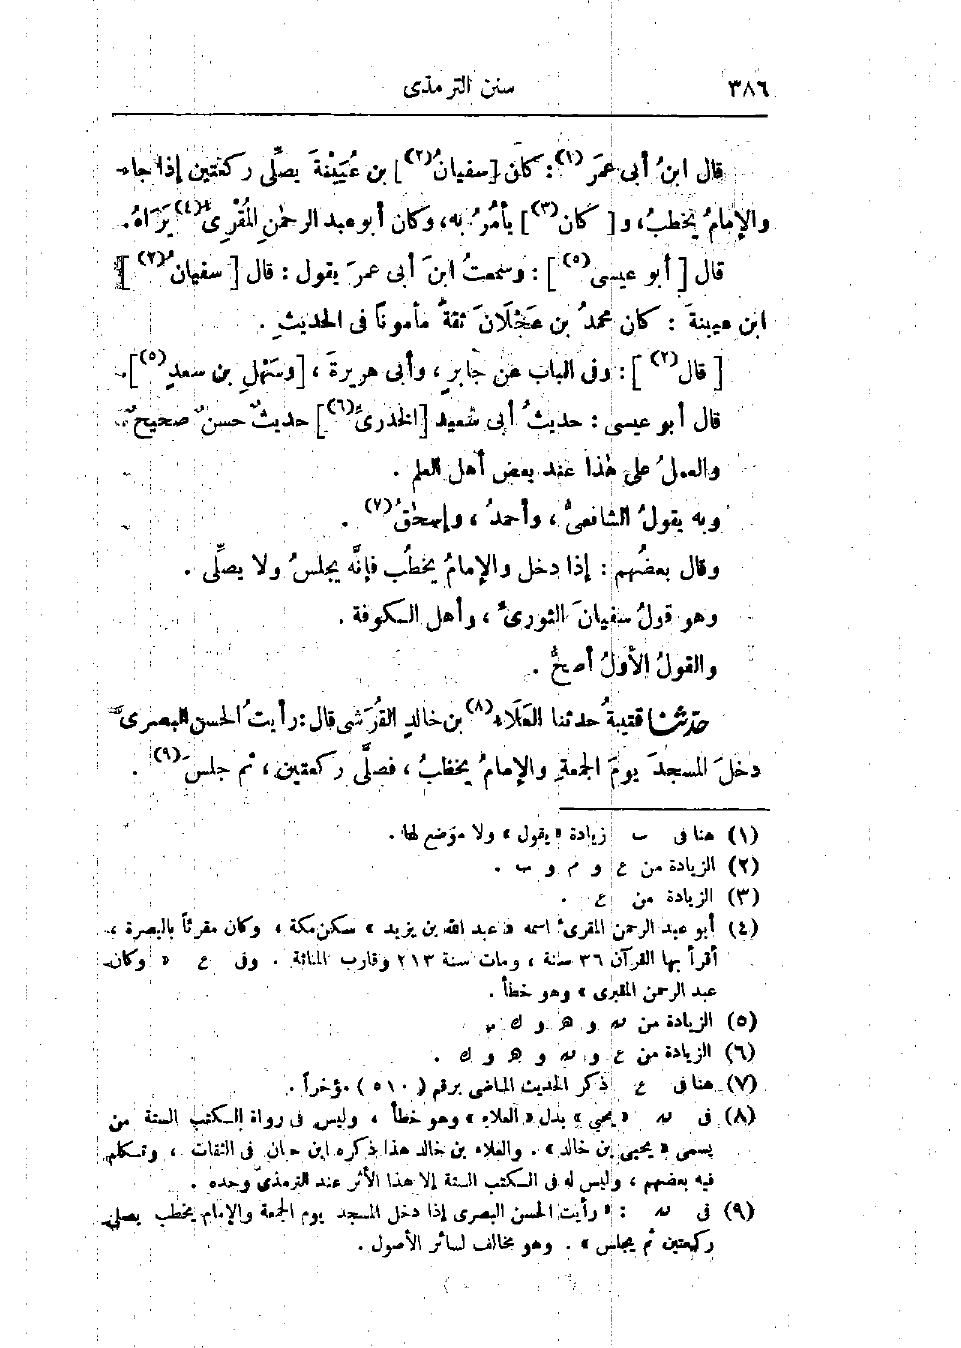 ٣٨٦ سنن الترمذى
قال ابنُ أبى عمَرَ (١): كانَ [سفيانُ (٢)] بن عُيَيْنَةَ يصلِّى ركعتين إذا جاء
والإمامُ يخطبُ، و [ كان (٣)] يأمُرُ به، وكان أبو عبد الرحمٰنِ المُقْرِئُ (٤) يَرَاهُ.
قال [ أبو عيسى (٥) ] : وسمعتُ ابنَ أبى عمرَ يقول : قال [ سفيانُ (٢) ]
ابن عيينةَ : كان محمدُ بن عَجْلَانَ ثقةً مأموناً فى الحديثِ .
[ قال (٢) ] : وفى الباب عن جابرٍ ، وأبى هريرةَ ، [وسَهْلِ بن سعدٍ (٥)].
قال أبو عيسى : حديثُ أبى سَعيد [الخدرىِّ (٦)] حديثٌ حسنٌ صحيحٌ
والعملُ على هٰذا عند بعض أهل العلم .
وبه يقولُ الشافعىُّ ، وأحمدُ ، وإسحٰقُ (٧) .
وقال بعضُهم : إذا دخل والإمامُ يخطُب فإنَّه يجلسُ ولا يصلِّى .
وهو قولُ سفيانَ الثورىِّ ، وأهل الكوفة .
والقولُ الأولُ أصحُّ .
حدّثنا قتيبةُ حدثنا العَلَاء (٨) بن خالدٍ القُرَشى قال : رأيتُ الحسن البصرىَّ
دخلَ المسجدَ يومَ الجمعةِ والإمامُ يخطبُ ، فصلَّى ركعتين ، ثم جلسَ (٩) .
(١) هنا فى ب زيادة « يقول » ولا موضع لها .
(٢) الزيادة من ع و م و ب .
(٣) الزيادة من ع .
(٤) أبو عبد الرحمن المقرئ اسمه « عبد الله بن يزيد » سكن مكة ، وكان مقرئاً بالبصرة ،
أقرأ بها القرآن ٣٦ سنة ، ومات سنة ٢١٣ وقارب المائة . وفى ع « وكان
عبد الرحمن المقبرى » وهو خطأ .
(٥) الزيادة من نه و ه و ك
(٦) الزيادة من ع و نه و ه و ك .
(٧) هنا فى ع ذكر الحديث الماضى برقم ( ٥١٠ ) مؤخراً .
(٨) فى نه « يحيى » بدل « العلاء » وهو خطأ ، وليس فى رواة الكتب الستة من
يسمى « يحيى بن خالد » . والعلاء بن خالد هذا ذكره ابن حبان فى الثقات ، وتكلم
فيه بعضهم ، وليس له فى الكتب الستة إلا هذا الأثر عند الترمذىّ وحده .
(٩) فى نه : « رأيت الحسن البصرى إذا دخل المسجد يوم الجمعة والإمام يخطب يصلى
ركعتين ثم يجلس » . وهو مخالف لسائر الأصول .